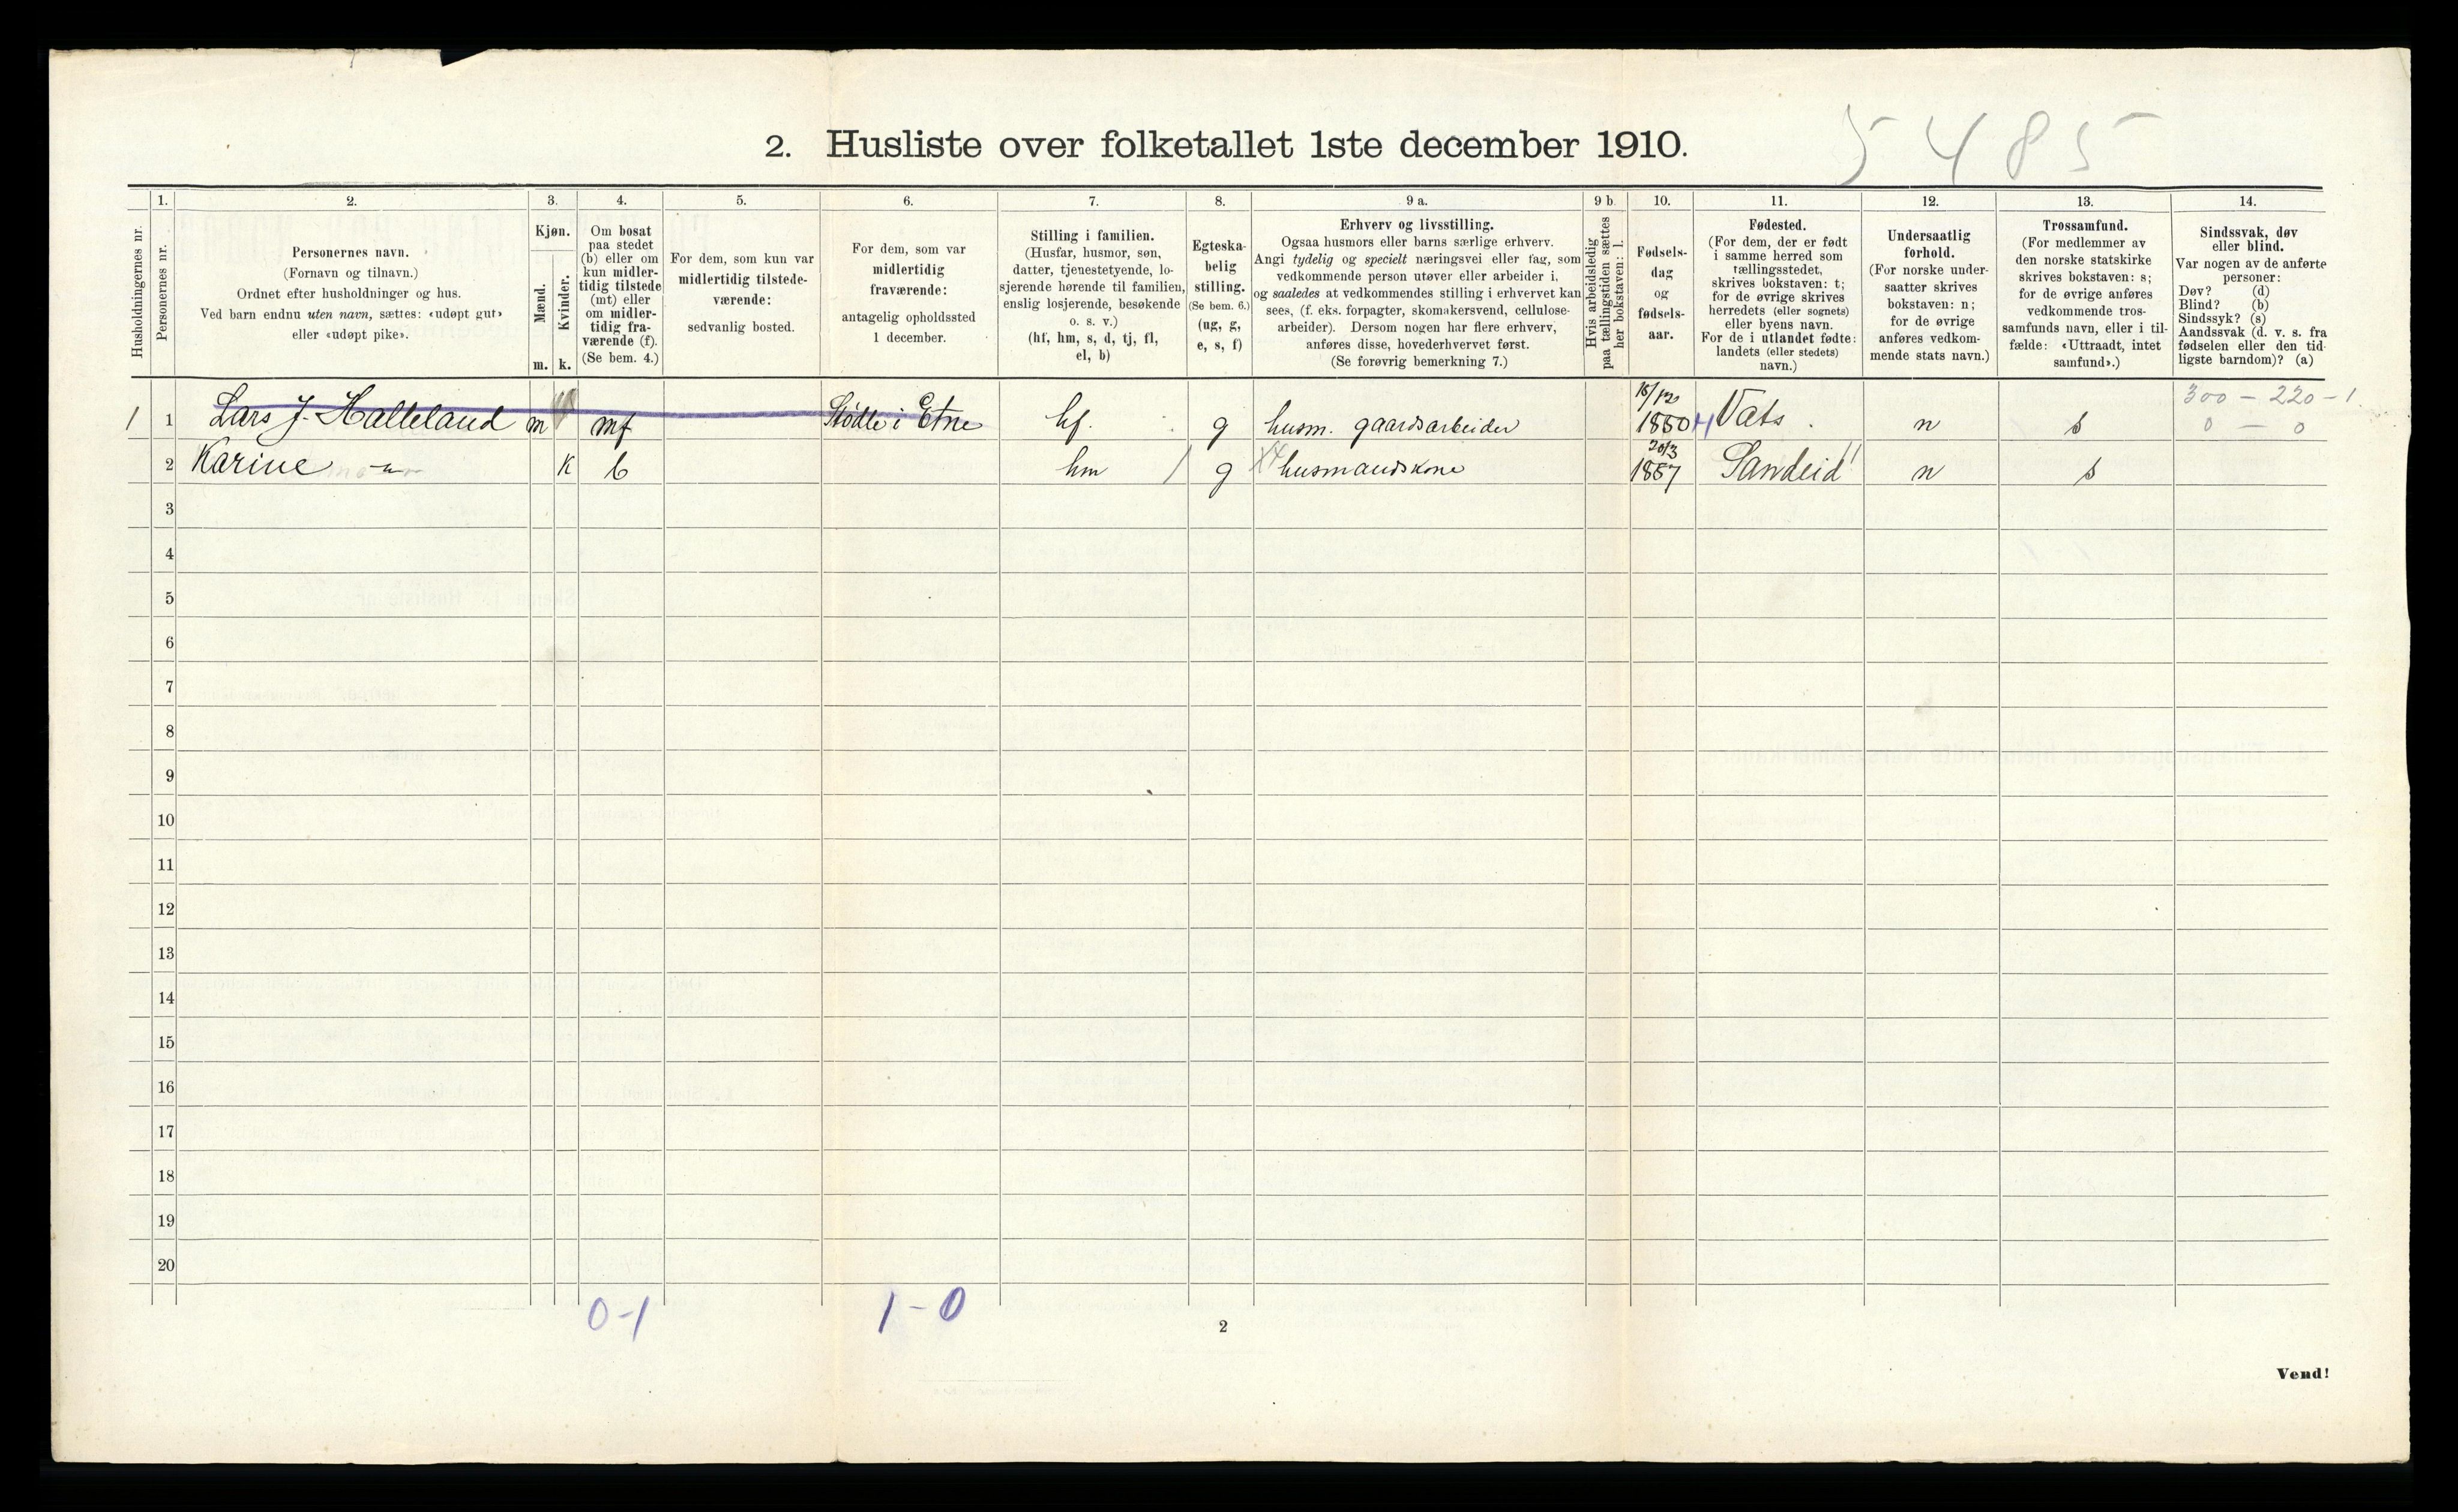 5485
2. Husliste over folketallet 1ste december 1910.
Husholdningernes nr.
1.
Personernes nr.
2.
Personernes navn.
(Fornavn og tilnavn.)
Ordnet efter husholdninger og hus.
Ved barn endnu uten navn, sættes: «udøpt gut»
eller «udøpt pike».
3.
Kjøn.
Mænd.
Kvinder.
m. k.
4.
Om bosat
paa stedet
(b) eller om
kun midler-
tidig tilstede
(mt) eller
om midler-
tidig fra-
værende (f).
(Se bem. 4.)
5.
For dem, som kun var
midlertidig tilstede-
værende:
sedvanlig bosted.
6.
For dem, som var
midlertidig
fraværende:
antagelig opholdssted
1 december.
7.
Stilling i familien.
(Husfar, husmor, søn,
datter, tjenestetyende, lo-
sjerende hørende til familien,
enslig losjerende, besøkende
o. s. v.)
(hf, hm, s, d, tj, fl,
el, b)
8.
Egteska-
belig
stilling.
(Se bem. 6.)
(ug, g,
e, s, f)
9 a.
Erhverv og livsstilling.
Ogsaa husmors eller barns særlige erhverv.
Angi tydelig og specielt næringsvei eller fag, som
vedkommende person utøver eller arbeider i,
og saaledes at vedkommendes stilling i erhvervet kan
sees, (f. eks. forpagter, skomakersvend, cellulose-
arbeider). Dersom nogen har flere erhverv,
anføres disse, hovederhvervet først.
(Se forøvrig bemerkning 7.)
9 b.
Hvis arbeidsledig
paa tællingstiden sættes
her bokstaven: l.
10.
Fødsels-
dag
og
fødsels-
aar.
11.
Fødested.
(For dem, der er født
i samme herred som
tællingsstedet,
skrives bokstaven: t;
for de øvrige skrives
herredets (eller sognets)
eller byens navn.
For de i utlandet fødte:
landets (eller stedets)
navn.)
12.
Undersaatlig
forhold.
(For norske under-
saatter skrives
bokstaven: n;
for de øvrige
anføres vedkom-
mende stats navn.)
13.
Trossamfund.
(For medlemmer av
den norske statskirke
skrives bokstaven: s;
for de øvrige anføres
vedkommende tros-
samfunds navn, eller i til-
fælde: «Uttraadt, intet
samfund».)
14.
Sindssvak, døv
eller blind.
Var nogen av de anførte
personer:
Døv? (d)
Blind? (b)
Sindssyk? (s)
Aandssvak (d. v. s. fra
fødselen eller den tid-
ligste barndom)? (a)
300 – 220 – 1
0 – 0
1 1 Lars J. Halleland m mf Stødle i Etne hf. g husm. gaardsarbeider 16/12 1850 Vats n s
2 Karine –"– k b hm g husmandskone 20/3 1857 Sandeid n s
3
4
5
6
7
8
9
10
11
12
13
14
15
16
17
18
19
20
0-1
1-0
2
Vend!